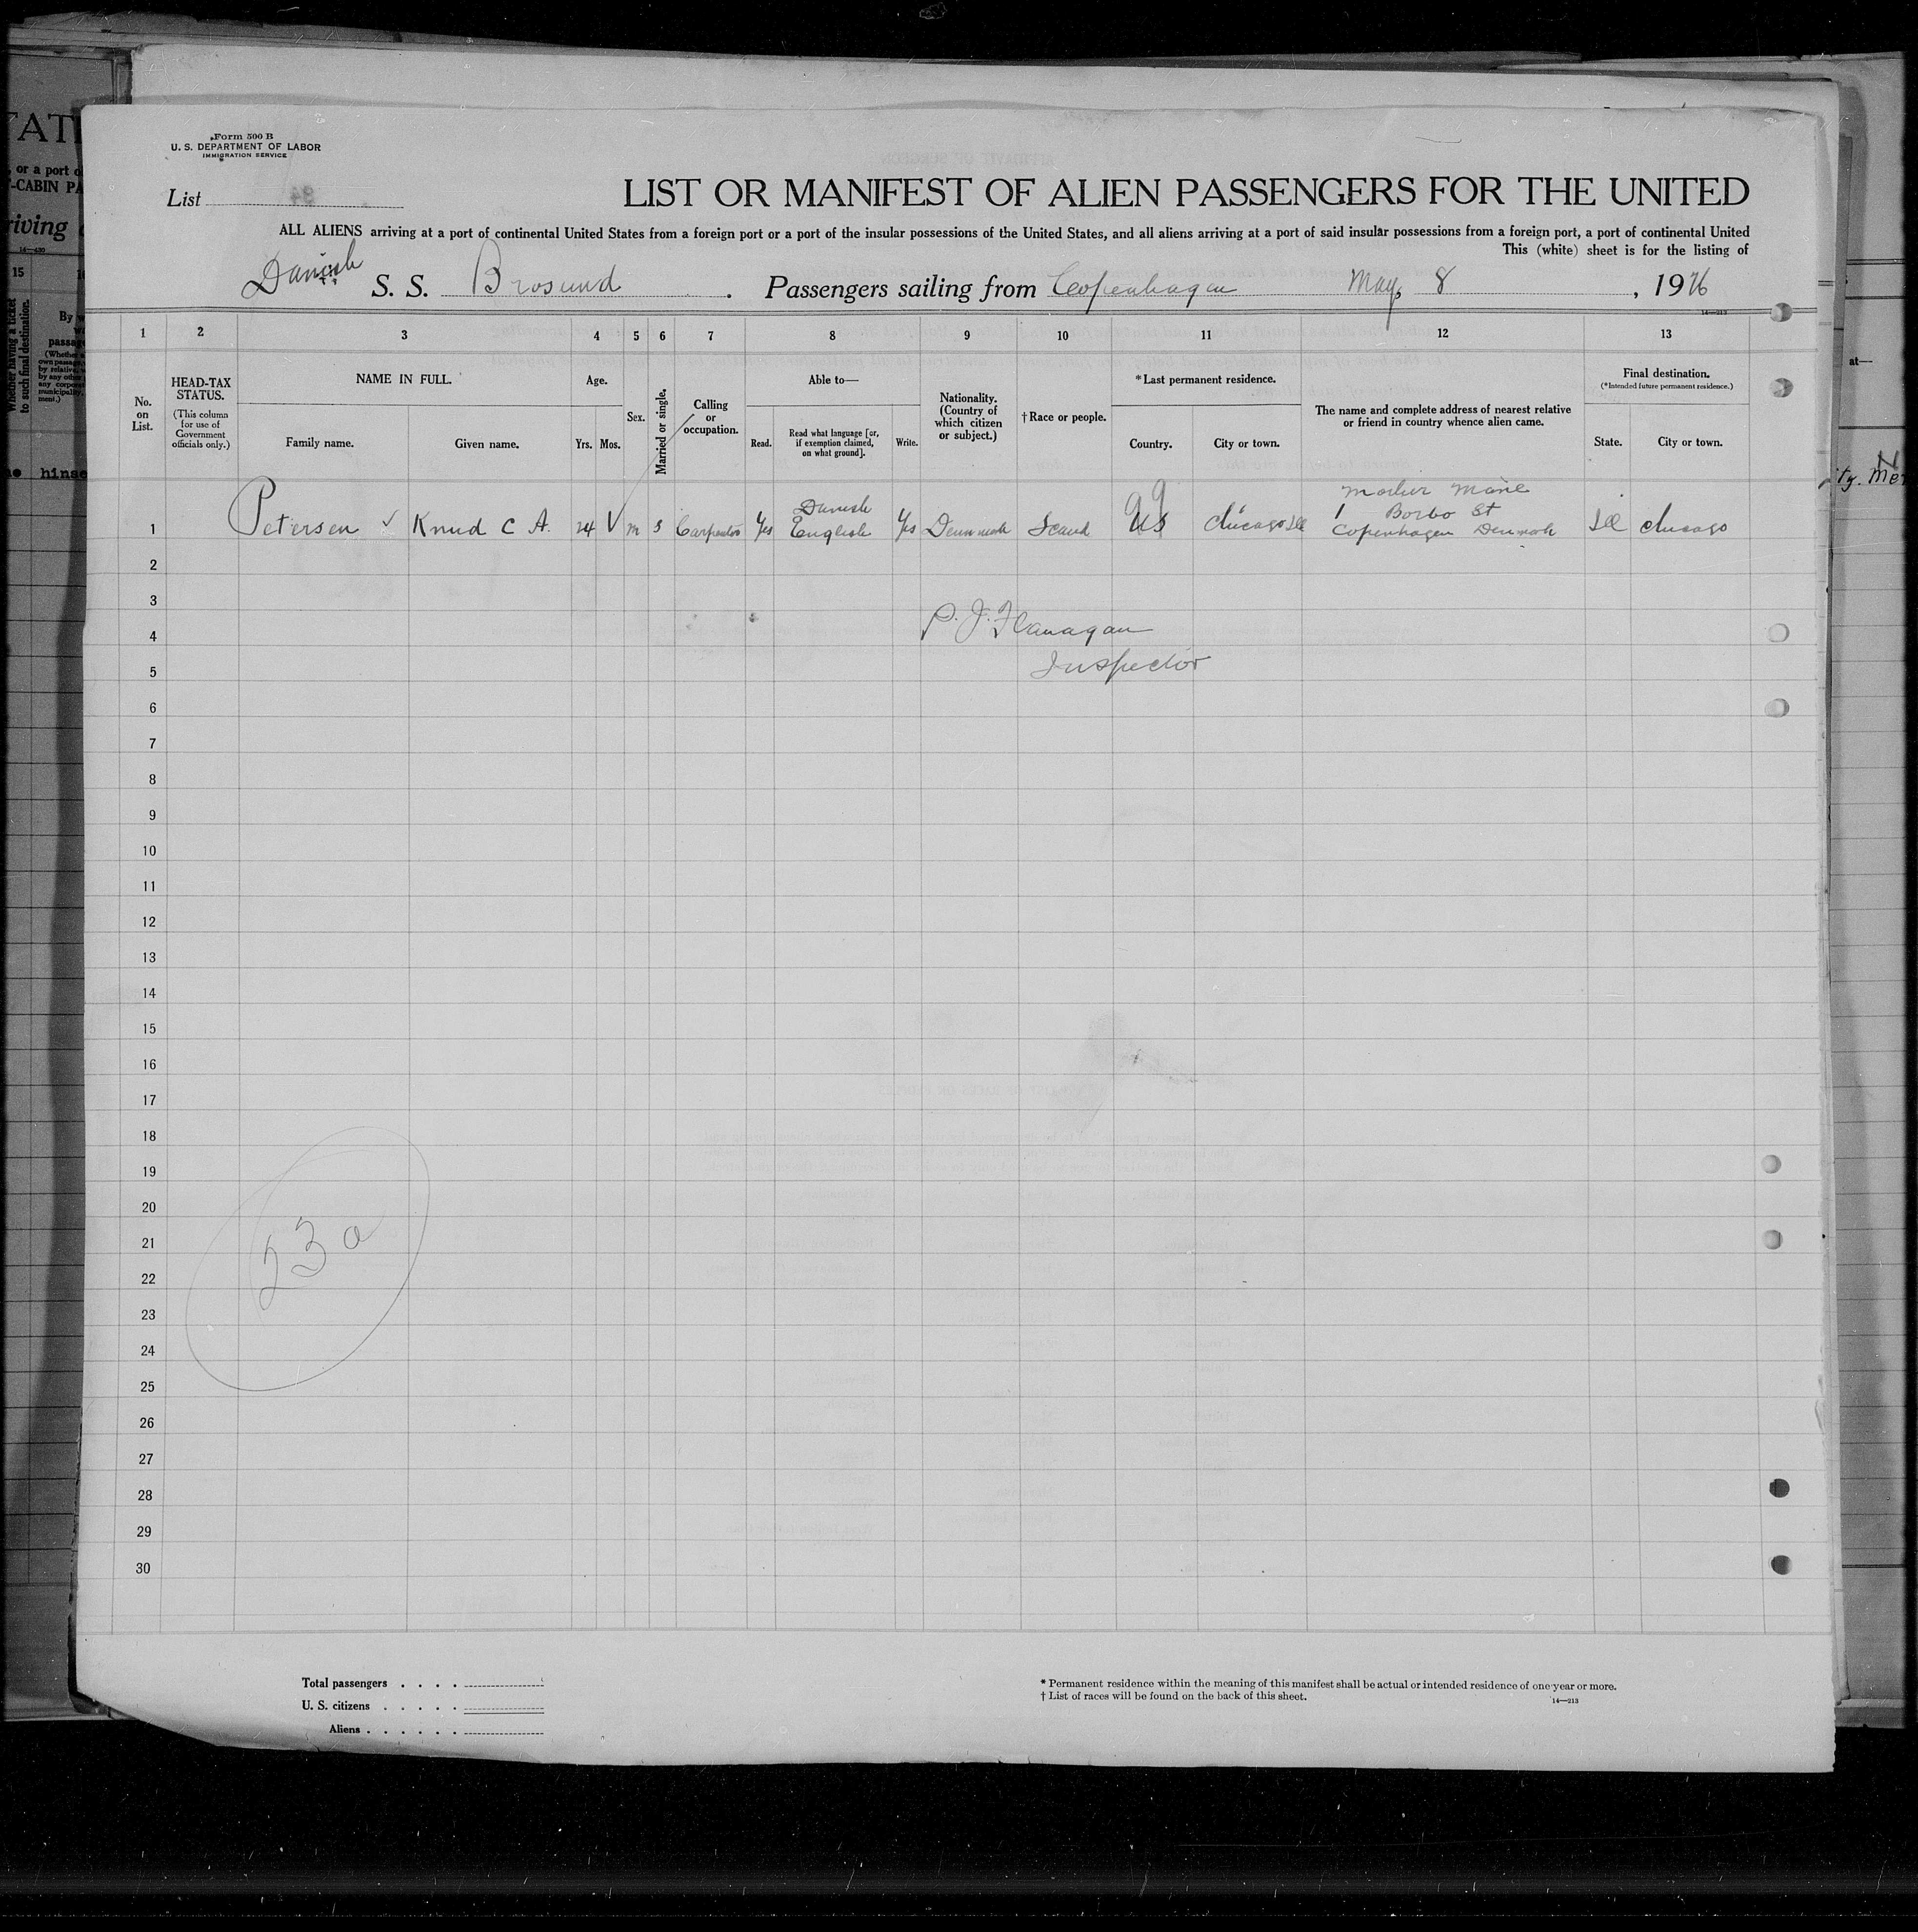 Form 500 B
U. S. DEPARTMENT OF LABOR
IMMIGRATION SERVICE
List
LIST OR MANIFEST OF ALIEN PASSENGERS FOR THE UNITED
ALL ALIENS arriving at a port of continental United States from a foreign port or a port of the insular possessions of the United States, and all aliens arriving at a port of said insular possessions from a foreign port, a port of continental United
This (white) sheet is for the listing of
Danish S. S. Brosund. Passengers sailing from Copenhagen May, 8, 1926
14—213
1 2 3 4 5 6 7 8 9 10 11 12 13
No. on List.
HEAD-TAX STATUS.
(This column for use of Government officials only.)
NAME IN FULL.
Family name. Given name.
Age.
Yrs. Mos.
Sex.
Married or single.
Calling or occupation.
Able to—
Read.
Read what language [or, if exemption claimed, on what ground].
Write.
Nationality. (Country of which citizen or subject.)
†Race or people.
*Last permanent residence.
Country. City or town.
The name and complete address of nearest relative or friend in country whence alien came.
Final destination.
(*Intended future permanent residence.)
State. City or town.
1 Petersen ✓ Knud C A. 24 m s Carpenter Yes Danish English Yes Denmark Scand US Chicago Ill
Mother Marie
1 Borbo St
Copenhagen Denmark
Ill Chicago
2
3
P. J. Flanagan
4
Inspector
5
6
7
8
9
10
11
12
13
14
15
16
17
18
19
20
23 a
21
22
23
24
25
26
27
28
29
30
Total passengers
U. S. citizens
Aliens
* Permanent residence within the meaning of this manifest shall be actual or intended residence of one year or more.
† List of races will be found on the back of this sheet.
14—213